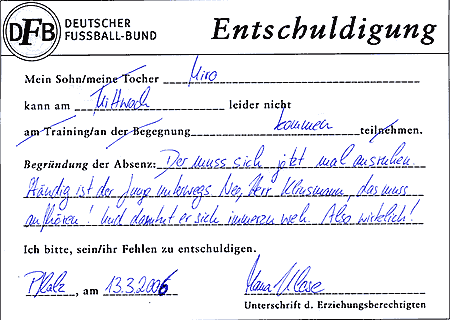 DFB DEUTSCHER FUSSBALL-BUND
Entschuldigung
Mein Sohn/meine Tocher Miro
kann am Mittwoch leider nicht
am Training/an der Begegnung kommen teilnehmen.
Begründung der Absenz: Der muss sich jetzt mal ausruhen.
Ständig ist der Junge unterwegs. Nee, Herr Klinsmann, das muss
aufhören! Und dann tut er sich immerzu weh. Also wirklich!
Ich bitte, sein/ihr Fehlen zu entschuldigen.
Pfalz, am 13.3.2006 Mama Klose
Unterschrift d. Erziehungsberechtigten